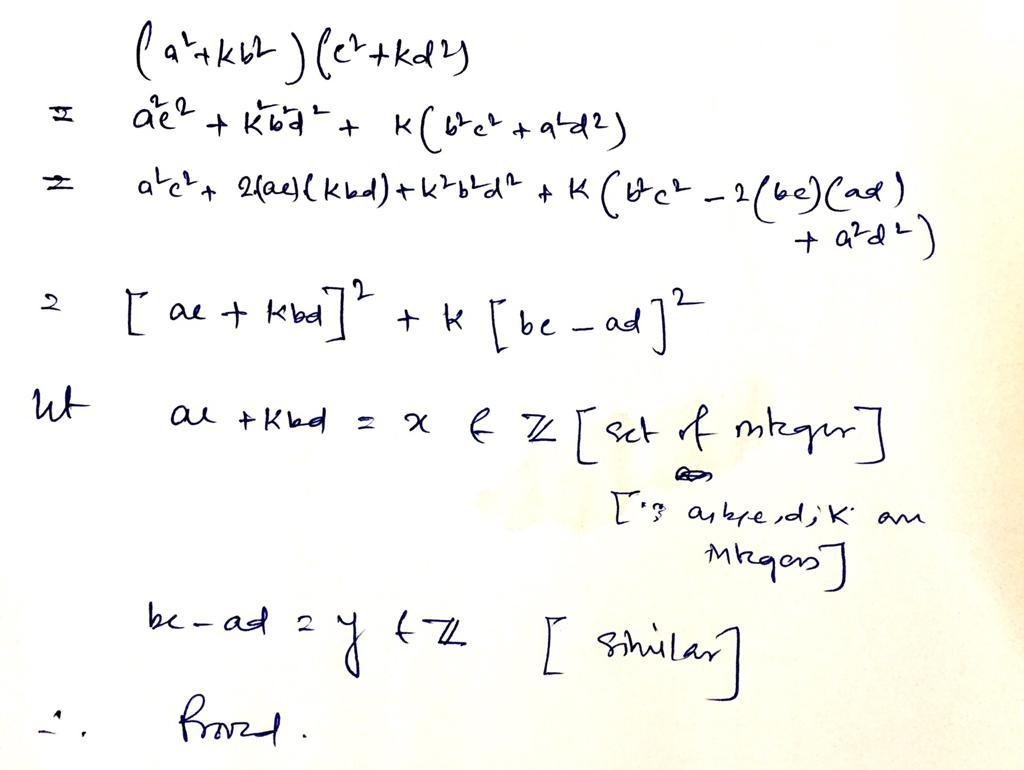 (a²+kb²)(c²+kd²)
= a²c² + k²b²d² + k(b²c² + a²d²)
= a²c² + 2(ac)(kbd) + k²b²d² + k(b²c² - 2(bc)(ad)
+ a²d²)
= [ac + kbd]² + k[bc - ad]²
let ac + kbd = x ∈ ℤ [set of integer]
[∵ a,b,c,d,k are
integers]
bc - ad = y ∈ ℤ [similar]
∴ Proved.